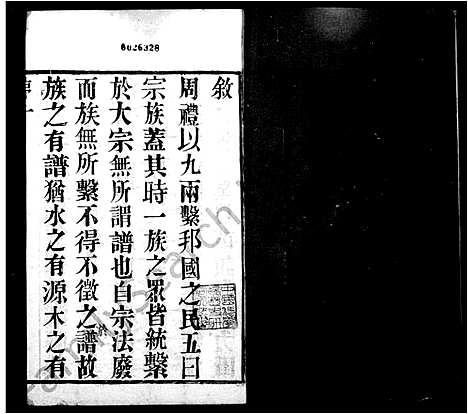 6026328
敘
周禮以九兩繫邦國之民五曰
宗族蓋其時一族之眾皆統繫
於大宗無所謂譜也自宗法廢
而族無所繫不得不徵之譜故
族之有譜猶水之有源木之有
FamilySearch